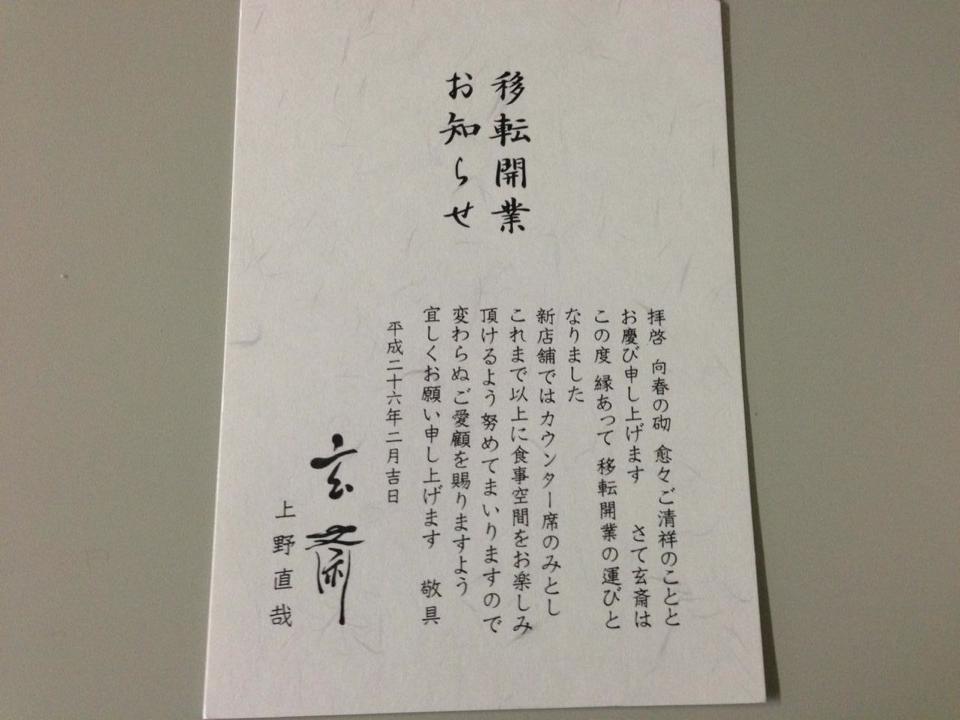 移転開業
お知らせ
拝啓 向春の砌 愈々ご清祥のことと
お慶び申し上げます さて玄斎は
この度 縁あって 移転開業の運びと
なりました
新店舗ではカウンター席のみとし
これまで以上に食事空間をお楽しみ
頂けるよう 努めてまいりますので
変わらぬご愛顧を賜りますよう
宜しくお願い申し上げます 敬具
平成二十六年二月吉日
玄斎
上野直哉